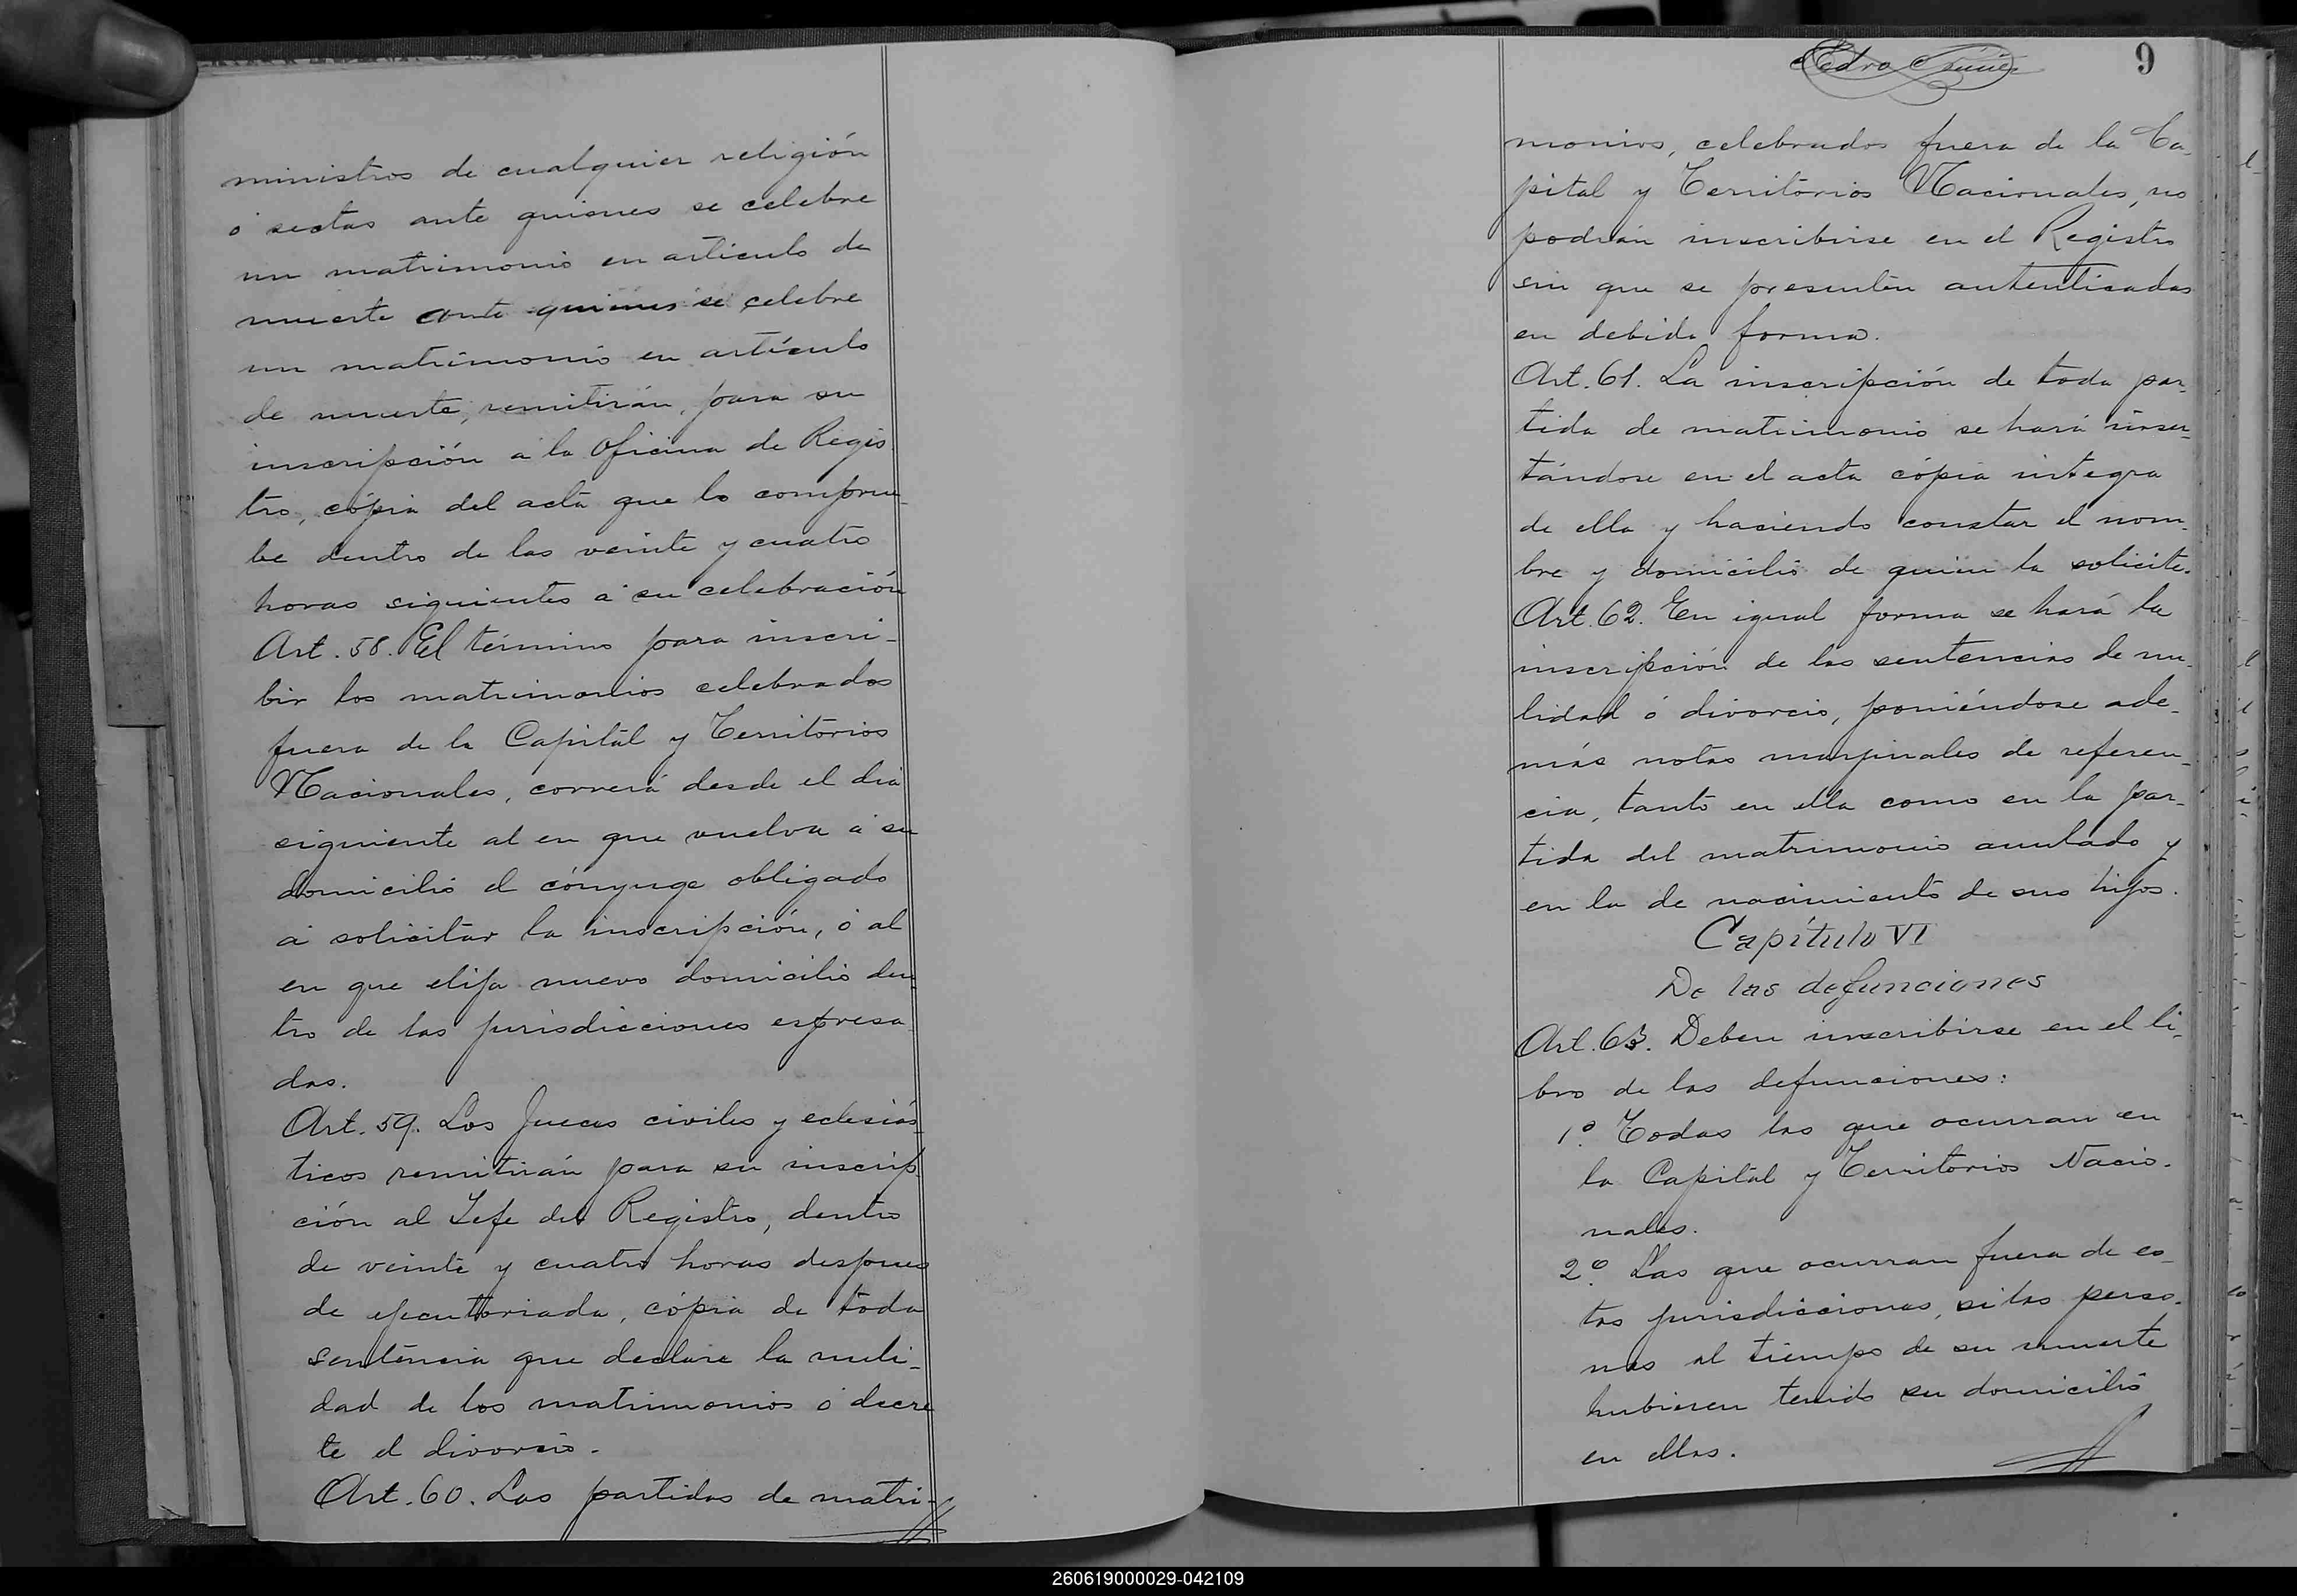 ministros de cualquier religión
ó sectas ante quienes se celebre
un matrimonio en artículo de
muerte ante quienes se celebre
un matrimonio en artículo
de muerte, remitirán, para su
inscripción á la Oficina de Regis
tro, cópia del acta que lo comprue-
be dentro de las veinte y cuatro
horas siguientes á su celebración
Art. 58. El término para inscri-
bir los matrimonios celebrados
fuera de la Capital y Territorios
Nacionales, correrá desde el dia
siguiente al en que vuelva á su
domicilio el cónyuge obligado
á solicitar la inscripción, ó al
en que elija nuevo domicilio den-
tro de las jurisdicciones espresa-
das.
Art. 59. Los Jueces civiles y eclesiás-
ticos remitirán para su inscrip-
ción al Jefe del Registro, dentro
de veinte y cuatro horas despues
de ejecutoriada, cópia de toda
sentencia que declare la nuli-
dad de los matrimonios ó decre
te el divorcio.
Art. 60. Las partidas de matri-
Pedro
9
monios, celebrados fuera de la Ca-
pital y Territorios Nacionales, no
podrán inscribirse en el Registro
sin que se presenten autenticadas
en debida forma.
Art. 61. La inscripción de toda par-
tida de matrimonio se hará inser-
tándose en el acta cópia integra
de ella y haciendo constar el nom-
bre y domicilio de quien la solicite.
Art. 62. En igual forma se hará la
inscripción de las sentencias de nu-
lidad ó divorcio, poniéndose ade-
más notas marginales de referen-
cia, tanto en ella como en la par-
tida del matrimonio anulado y
en la de nacimiento de sus hijos.
Capítulo VI
De las defunciones
Art. 63. Deben inscribirse en el li-
bro de las defunciones:
1º. Todas las que ocurran en
la Capital y Territorios Nacio-
nales.
2º. Las que ocurran fuera de es-
tas jurisdicciones, si las perso-
nas al tiempo de su muerte
hubiesen tenido su domicilio
en ellas.
260619000029-042109